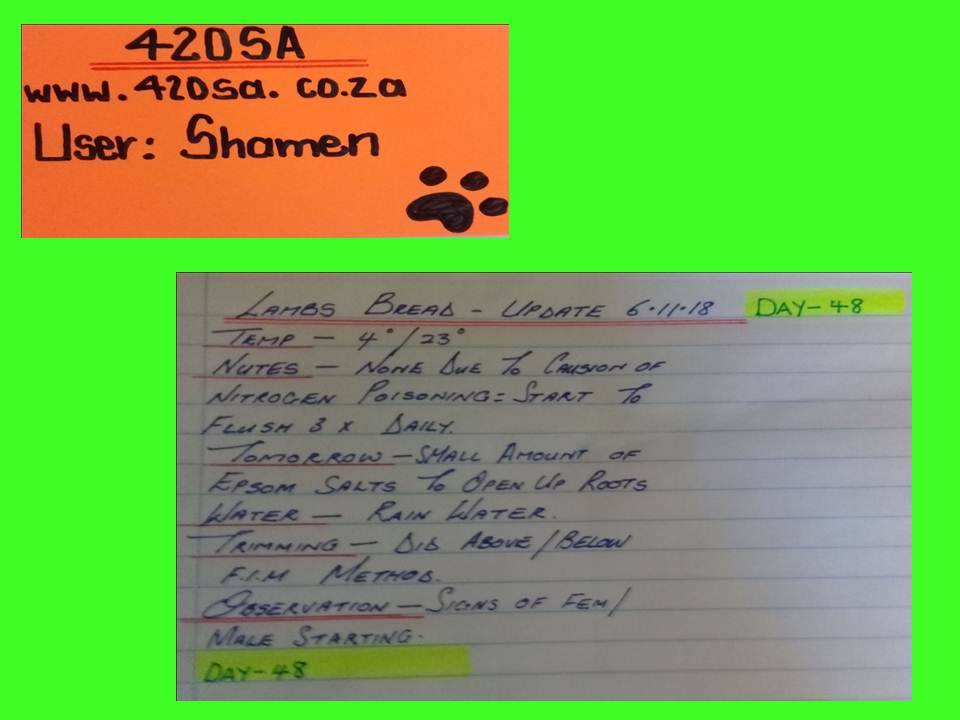 420SA
www.420sa.co.za
User: Shamen
LAMBS BREAD - UPDATE 6.11.18 DAY-48
TEMP - 4°/23°
NUTES - NONE DUE TO CAUSION OF
NITROGEN POISONING = START TO
FLUSH 3 X DAILY.
TOMORROW - SMALL AMOUNT OF
EPSOM SALTS TO OPEN UP ROOTS
WATER - RAIN WATER.
TRIMMING - DID ABOVE/BELOW
F.I.M METHOD.
OBSERVATION - SIGNS OF FEM/
MALE STARTING.
DAY-48